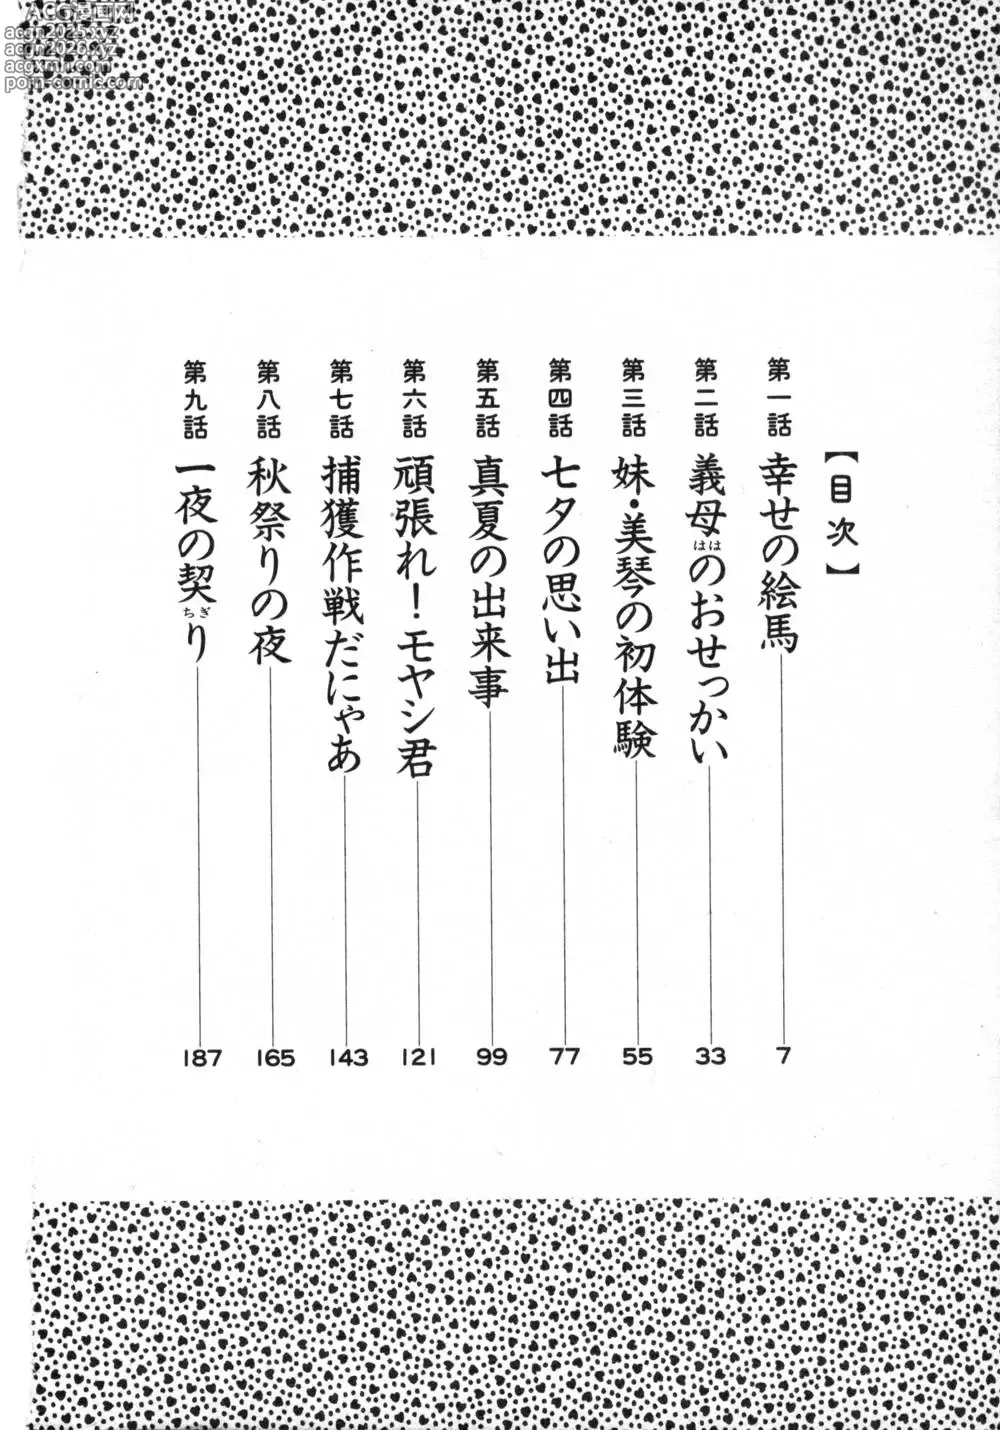 ACG漫画网
acgn2025.xyz
acgn2026.xyz
acgxmh.com
porn-comic.com
【目次】
第一話 幸せの絵馬 7
第二話 義母のおせっかい 33
はは
第三話 妹・美琴の初体験 55
第四話 七夕の思い出 77
第五話 真夏の出来事 99
第六話 頑張れ！モヤシ君 121
第七話 捕獲作戦だにゃあ 143
第八話 秋祭りの夜 165
第九話 一夜の契り 187
ちぎ